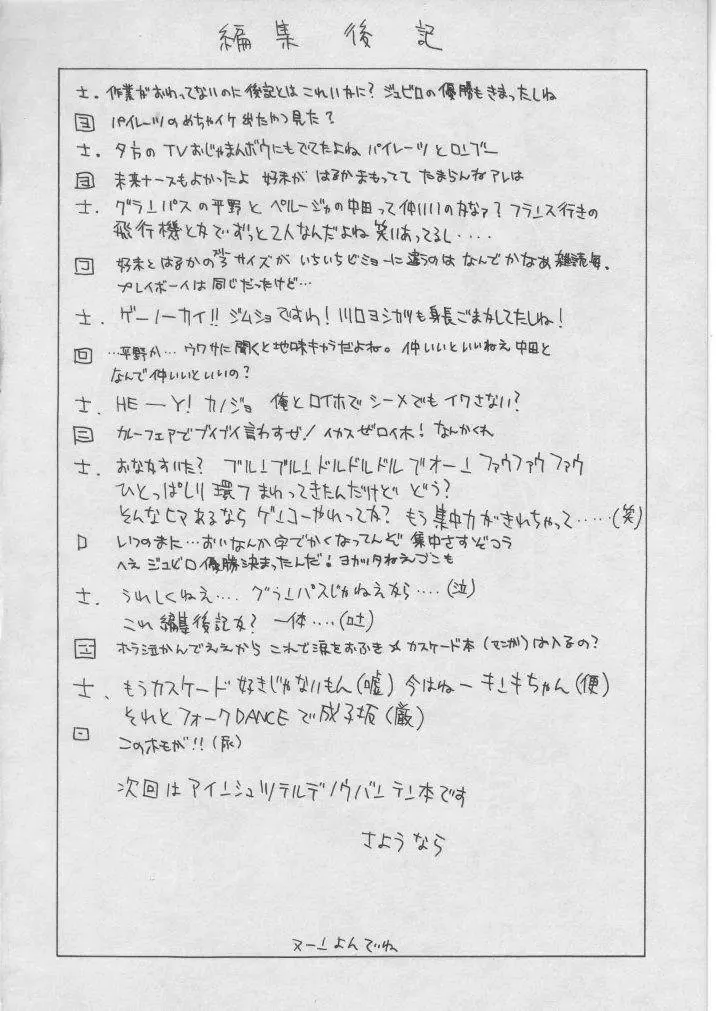 編集後記
士. 作業がおわってないのに後記とはこれいかに?ジュビロの優勝もきまったしね
ヨ パイレーツのめちゃイケ出たやつ見た?
士. 夕方のTVおじゃまんボウにもでてたよね パイレーツと
ヨ 未来ナースもよかったよ 好未が はるかまもってて たまらんねアレは
士. グランパスの平野とペルージャの中田って仲いいのかなァ?フランス行きの
飛行機とかでずっと2人なんだよね笑いあってるし・・・・
コ 好未とはるかの サイズが いちいちビミョーに違うのは なんでかなあ雑誌毎.
プレイボーイは同じだったけど…
士. ゲーノーカイ!!ジムショですわ!川口ヨシカツも身長ごまかしてたしね!
回 …平野か… ウワサに聞くと地味キャラだよね。仲いいといいねえ中田と
なんで仲いいといいの?
士. HE―Y! カノジョ 俺とロイホで シーメでもイワさない?
三 カレーフェアでブイブイ言わすぜ!イカスぜロイホ!なんかくれ
士. おなかすいた? ブルンブルンドルドルドルでオーン ファウファウファウ
ひとっぱしり 環7まわってきたんだけど どう?
そんなヒマあるなら ゲンコーやれってか? もう集中力がきれちゃって……(笑)
ロ いつのまに…おいなんか字でかくなってんぞ 集中さすぞコラ
へえ ジュビロ優勝決まったんだ!ヨカッタねえゴンも
士. うれしくねえ…. グランパスじゃねえなら….(泣)
これ編集後記か? 一体….(吐)
ホラ泣かんでええから これで涙をおふき メ カスケード本(マンガ)は入るの?
士. もうカスケード好きじゃないもん(嘘)今はねーキンキちゃん(便)
それとフォークDANCEで成子坂(厳)
このホモが!!(尿)
次回はアインシュツテルデノウバンテン本です
さようなら
ヌーンよんでね